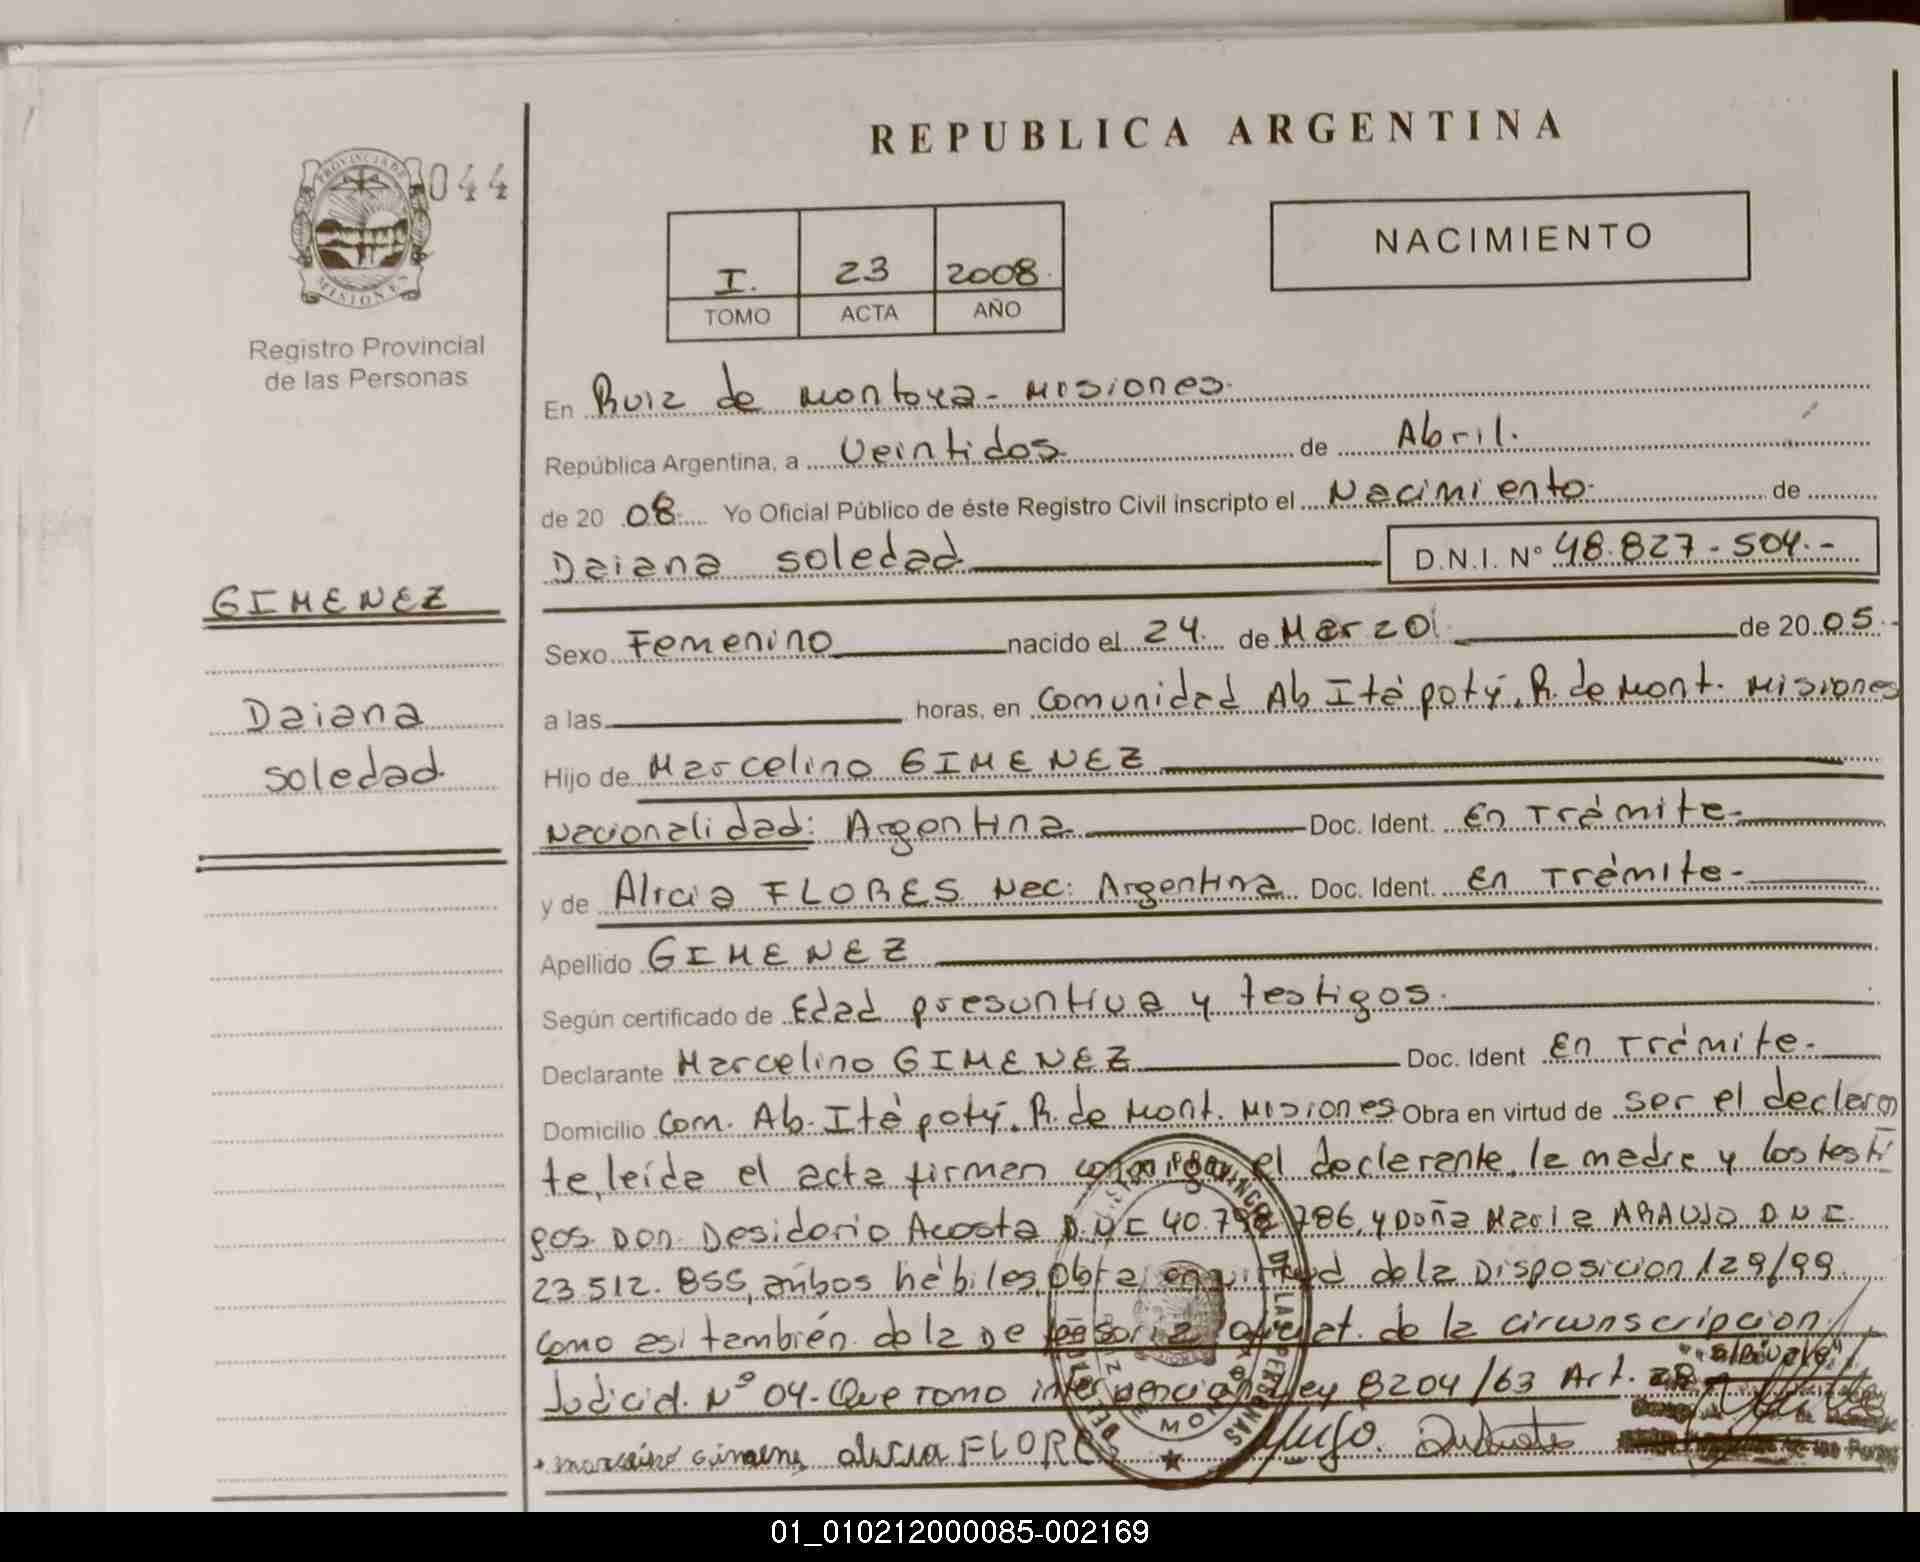 REPUBLICA ARGENTINA
PROVINCIA DE MISIONES
044
Registro Provincial
de las Personas
I. 23 2008.
TOMO ACTA AÑO
NACIMIENTO
En Ruiz de Montoya - Misiones.
República Argentina, a Veintidos de Abril.
de 20 08. Yo Oficial Público de éste Registro Civil inscripto el Nacimiento. de
Daiana Soledad D.N.I. N° 48.827-504.-
GIMENEZ
Daiana
Soledad
Sexo Femenino nacido el 24. de Marzo de 20 05.-
a las horas, en Comunidad Ab Ité poty. R. de Mont. Misiones
Hijo de Marcelino GIMENEZ
Nacionalidad: Argentina Doc. Ident. En Trámite-
y de Alicia FLORES Nac: Argentina Doc. Ident. En Trámite-
Apellido GIMENEZ
Según certificado de Edad presuntiva y testigos.
Declarante Marcelino GIMENEZ Doc. Ident En Trámite-
Domicilio Com. Ab-Ité poty. R. de Mont. Misiones Obra en virtud de ser el declaran
te, leída el acta firman conmigo, el declarante, la madre y los testi
gos Don Desiderio Acosta D.N.I 786, y Doña Maria ARAUJO D.N.I.
23.512.855, ambos hábiles, Obra en virtud de la Disposicion 129/99
como asi también de la Defensoria Oficial. de la circunscripcion
Judicial. N° 04- Que Tomo intervencion Ley 8204/63 Art. 28
Alicia FLORE
Hugo.
01_010212000085-002169